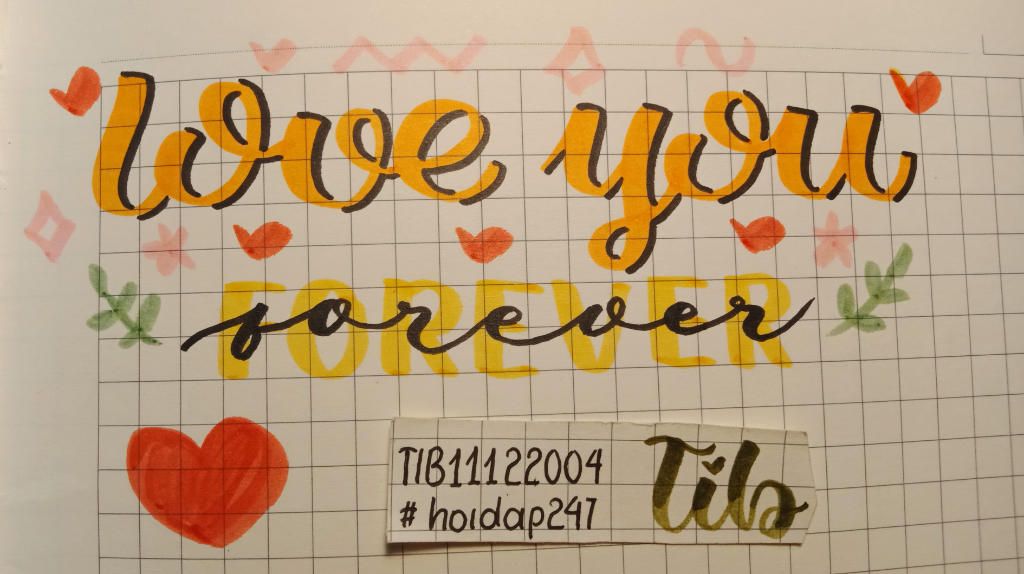 love you
FOREVER
forever
TIB11122004
# hoidap247
Tib